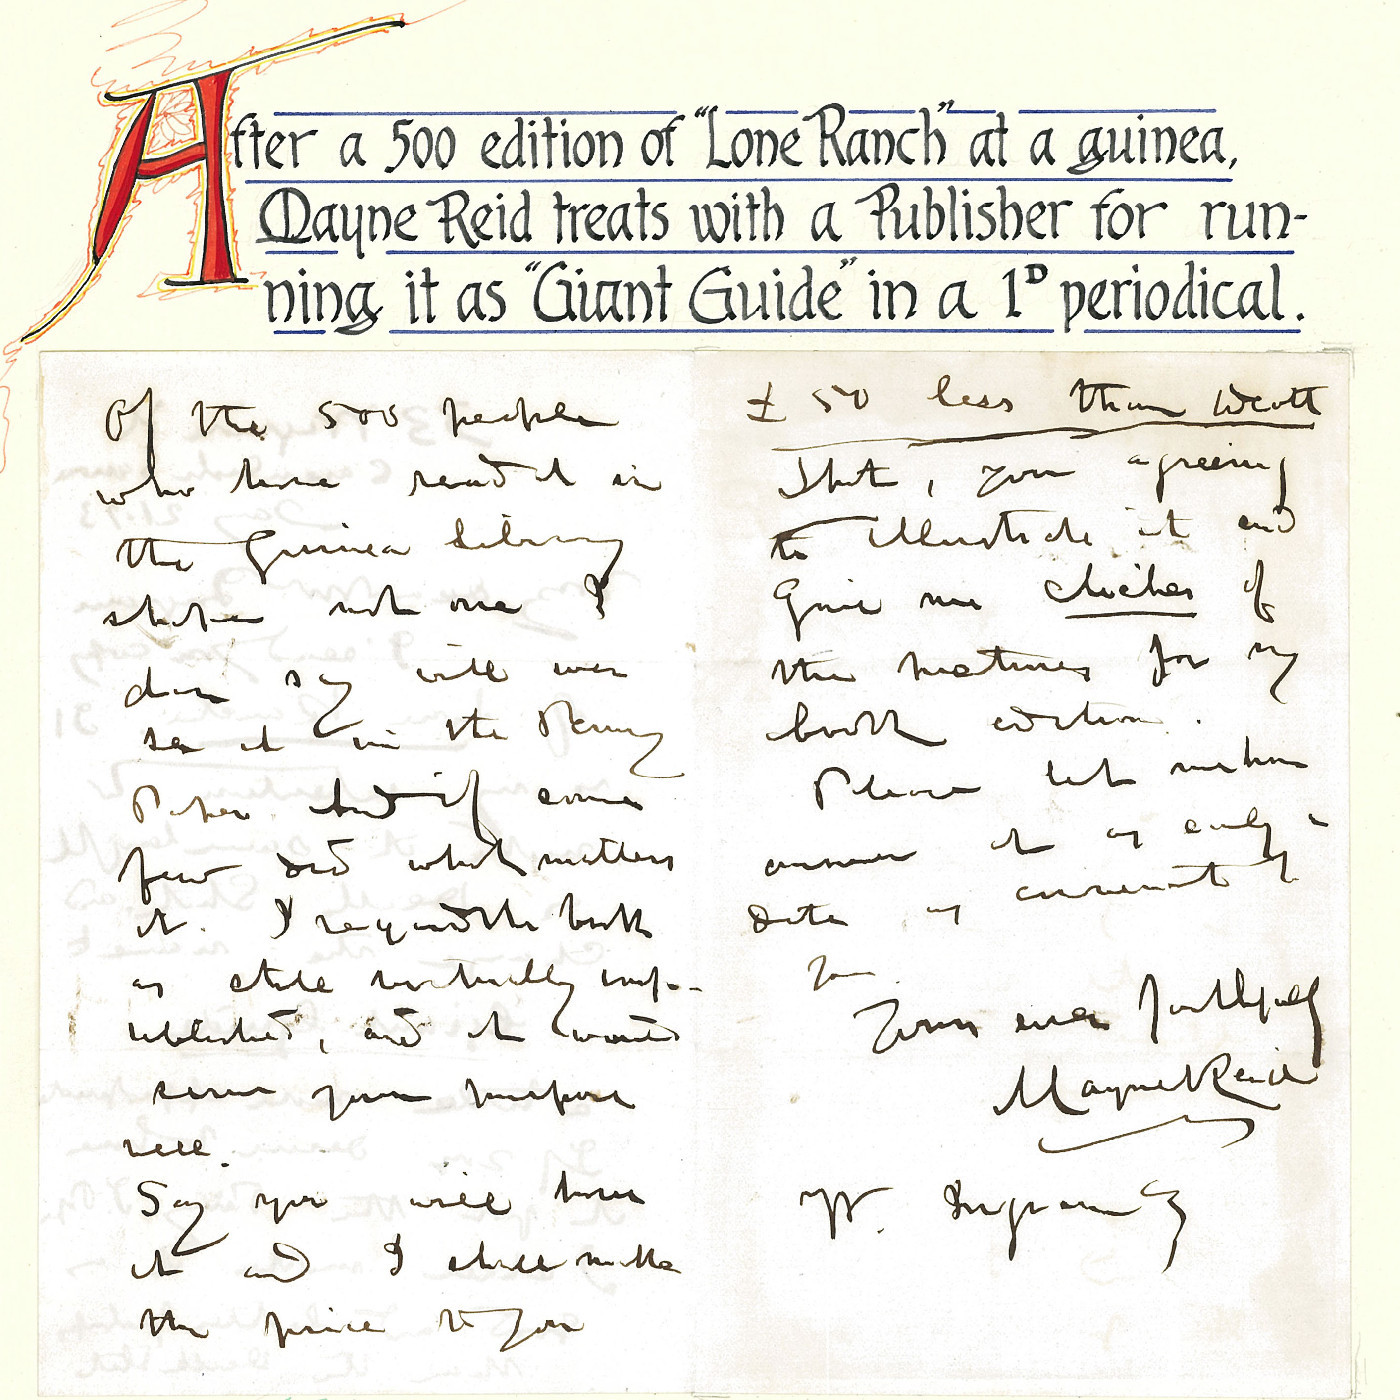 After a 500 edition of "Lone Ranch" at a guinea,
Mayne Reid treats with a Publisher for run-
ning it as "Giant Guide" in a 1D periodical.
Of the 500 people
who have read it in
the Guinea library
not one I
dare say will ever
see it in the Penny
Paper. And if some
few did what matters
it. I regard the book
as still virtually unp-
ublished, and it would
serve your purpose
well.
Say you will have
it and I shall make
the price to you
£50 less than
that, you agreeing
to illustrate it and
give me cliches of
the pictures for my
book edition.
Please let me have
answer at as early a
date as convenient
Yours ever faithfully
Mayne Reid
W. Ingram